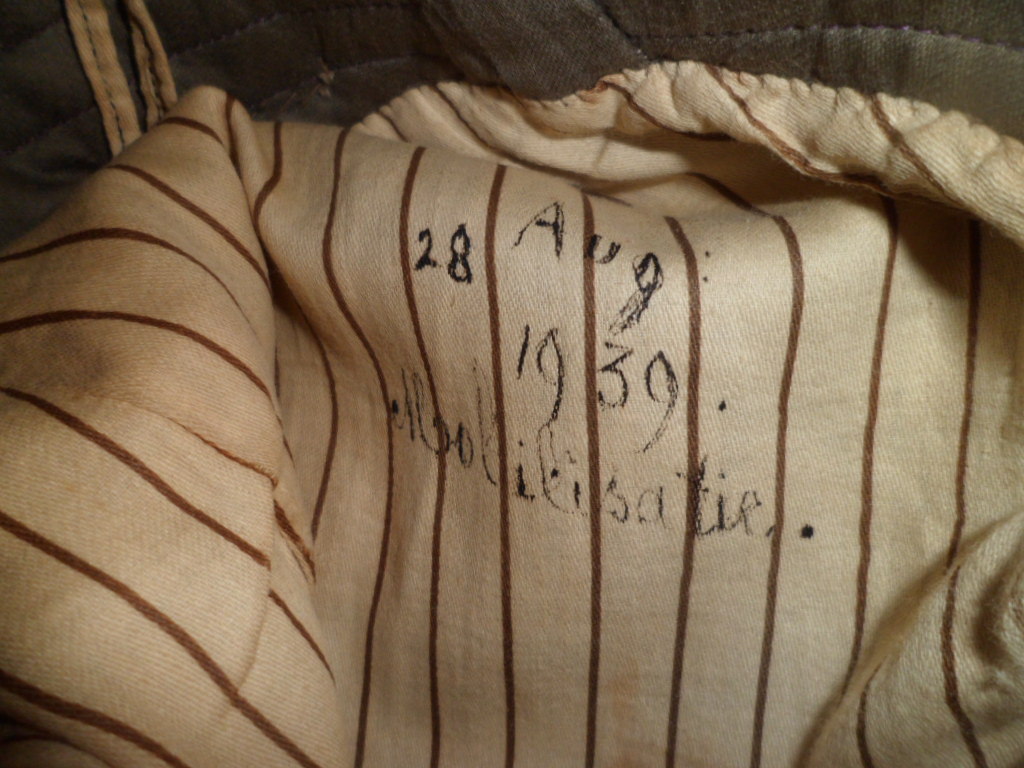 28 Aug:
1939.
Mobilisatie..